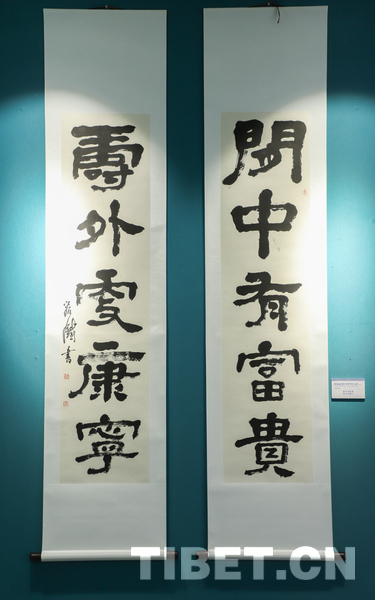 閒中有富貴
壽外更康寧
蕭嫻書
TIBET.CN